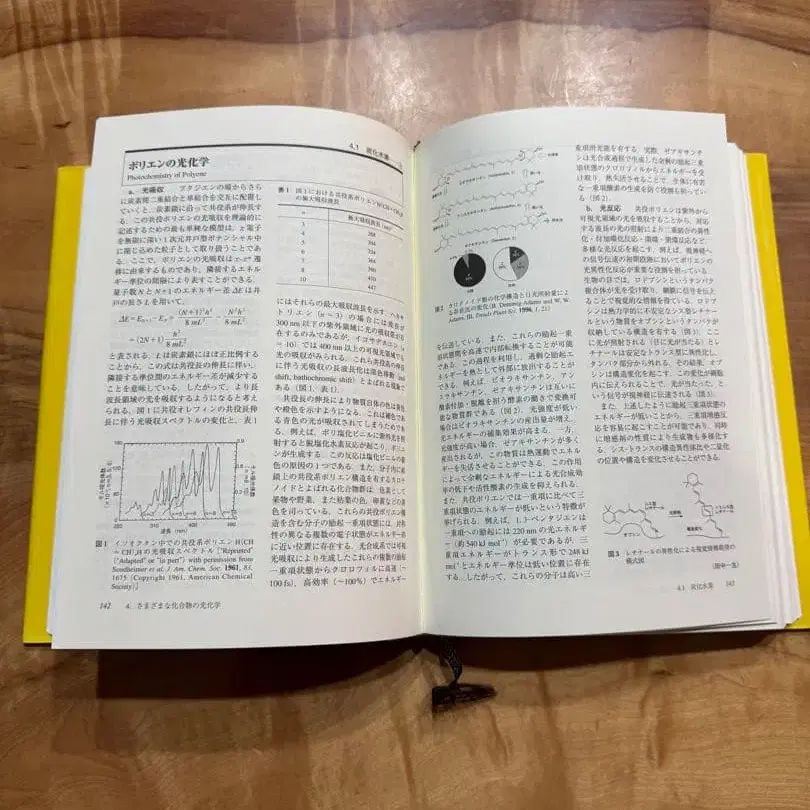 4.1 炭化水素
ポリエンの光化学
Photochemistry of Polyene
a. 光吸収 ブタジエンの端からさら
に炭素間二重結合と単結合を交互に配置し
ていくと、炭素鎖に沿って共役系が伸長す
る。この共役ポリエンの光吸収を理論的に
記述するための最も単純な模型は、π電子
を無限に深い1次元井戸型ポテンシャル中
に閉じ込めた粒子として取り扱うことであ
る。ここで、ポリエンの光吸収はπ-π*遷
移に由来するものであり、隣接するエネル
ギー単位の間隔により表すことができる。
量子数NとN+1のエネルギー差ΔEは井
戸の長さLを用いて、
ΔE=E_{N+1}−E_N=(N+1)²h²/8mL²−N²h²/8mL²
=(2N+1)h²/8mL²
と表される。Lは炭素鎖にほぼ正比例する
ことから、この式は共役長の伸長に伴い、
隣接する単位間のエネルギー差が減少する
ことを意味している。したがって、より長
波長領域の光を吸収するようになると考え
られる。図1に共役オレフィンの共役長伸
長に伴う光吸収スペクトルの変化と、表1
波長 (nm)
図1 イソオクタン中での共役系ポリエンH(CH
=CH)nHの光吸収スペクトル [“Reprinted”
(“Adapted” or “in part”) with permission from
Sondheimer et al. J. Am. Chem. Soc. 1961, 83,
1675 (Copyright 1961, American Chemical
Society)]
142 4. さまざまな化合物の光化学
表1 図1における共役系ポリエンH(CH=CH)nH
の極大吸収波長
n 極大吸収波長 (nm)
3 268
4 304
5 334
6 364
7 390
8 410
10 447
にはそれらの最大吸収波長を示す。ヘキサ
トリエン (n=3) の場合には波長が
300 nm以下の紫外領域に光の吸収帯が存
在するのみであるが、イコサデカエン (n
=10) では400 nm以上の可視光領域でも
光の吸収がみられる。これら共役系の伸長
に伴う光吸収の長波長化は深色移動 (red
shift, bathochromic shift) とよばれる現象で
ある (図1, 表1)。
共役長の伸長により物質自体の色は黄色
や橙色を示すようになる。これは補色であ
る青色の光が吸収されてしまうためであ
る。例えば、ポリ塩化ビニルに紫外光を照
射すると脱塩化水素反応が起こり、ポリエ
ンが生成する。この反応は塩化ビニルの着
色の原因の1つである。また、分子内に直
鎖上の共役系ポリエン構造を有するカロテ
ノイドとよばれる化合物群は、色素として
果物や野菜、また枯葉の色、卵黄などの黄
色を司っている。これらの共役ポリエン構
造を含む分子の励起一重項状態には、対称
性の異なる複数の電子状態がエネルギー的
に近い位置に存在する。光合成系では可視
光吸収により生成したこれらの複数の励起
一重項状態からクロロフィルに高速 (~
100 fs)、高効率 (~100%) でエネルギー
図2 カロテノイド類の化学構造と日光照射量によ
る存在比の変化 (B. Demmig-Adams and W. W.
Adams, III. Trends Plant Sci. 1996, 1, 21)
を伝達している。また、これらの励起一重
項状態間を高速で内部転換することが可能
である。この過程を利用し、過剰な励起エ
ネルギーを熱として外部に放出することが
できる。例えば、ビオラキサンチン、アン
テラキサンチン、ゼアキサンチンは互いに
酸素付加・脱離を担う酵素の働きで変換可
能な物質群である (図2)。光強度が低い
場合はビオラキサンチンの産出量が増え、
光エネルギーの捕集効果が高まる。一方、
光強度が高い場合、ゼアキサンチンが多く
産出されるが、この物質は熱運動でエネル
ギーを失活させることができる。この作用
によって余剰なエネルギーによる光合成効
率の低下や活性酸素の生成を抑えられる。
また、共役ポリエンでは一重項に比べて三
重項状態のエネルギーが低いという特徴が
挙げられる。例えば、1, 3-ペンタジエンは
一重項への励起には220 nmの光エネルギ
ー (約540 kJ mol⁻¹) が必要であるが、三
重項エネルギーがトランス形で248 kJ
mol⁻¹とエネルギー準位は低い位置に存在
する。したがって、これらの分子は高い三
重項消光能を有する。実際、ゼアキサンチ
ンは光合成過程で生成した余剰の励起三重
項状態のクロロフィルからエネルギーを受
け取り、熱失活させることで、生体に有害
な一重項酸素の生成を防ぐ役割を担ってい
る。
b. 光反応 共役ポリエンは紫外から
可視光領域の光を吸収することから、対応
する波長の光の照射により二重結合の異性
化・付加環化反応・開環・閉環反応など、
多様な光反応を起こす。例えば、視神経へ
の信号伝達の初期段階においてポリエンの
光異性化反応が重要な役割を担っている。
生物の目では、ロドプシンというタンパク
複合体が光を受け取り、網膜に信号を伝え
ることで視覚的な情報を得ている。ロドプ
シンは熱力学的に不安定なシス型レチナー
ルという物質をオプシンというタンパクが
収納している構造を有する (図3)。ここ
に光が照射される (目に光が当たる) とレ
チナールは安定なトランス型に異性化し、
タンパク部分から外れる。その結果、オプ
シンは構造変化をおこす。この変化が網膜
内に伝えられることで、光が当たった、と
いう信号が視神経に伝達される (図3)。
また、上述したように励起三重項状態の
エネルギーが低いことから、三重項増感反
応を容易に起こすことが可能であり、同時
に増感剤の性質により生成物も多様化す
る。シス-トランスの構造異性体比や二量化
の位置や構造を変化させることができる。
オプシン
図3 レチナールの異性化による視覚情報処理の
模式図
(田中一生)
4.1 炭化水素 143